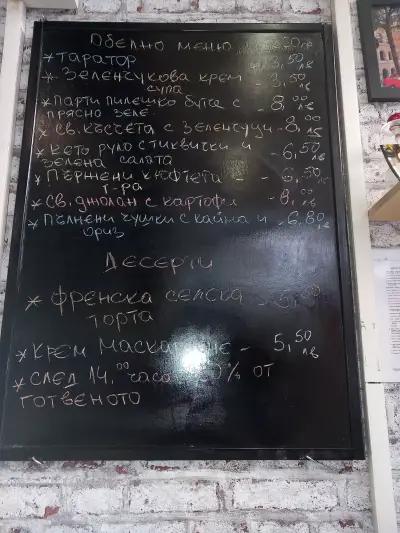 Обедно меню
* Таратор - 3,50 лв
* Зеленчукова крем - 3,50 лв
супа
* Парти пилешко бутче с - 8,00 лв
прясно зеле
* Св. късчета с зеленчуци - 8,00 лв
* Кето руло с тиквички и - 6,50 лв
зелена салата
* Пържени кюфтета - 6,50 лв
т-ра
* Св. джолан с картофи - 8,00 лв
* Пълнени чушки с кайма и - 6.80 лв
ориз
Десерти
* Френска селска
торта
* Крем - 5,50 лв
* След 14,00 часа от
готвеното